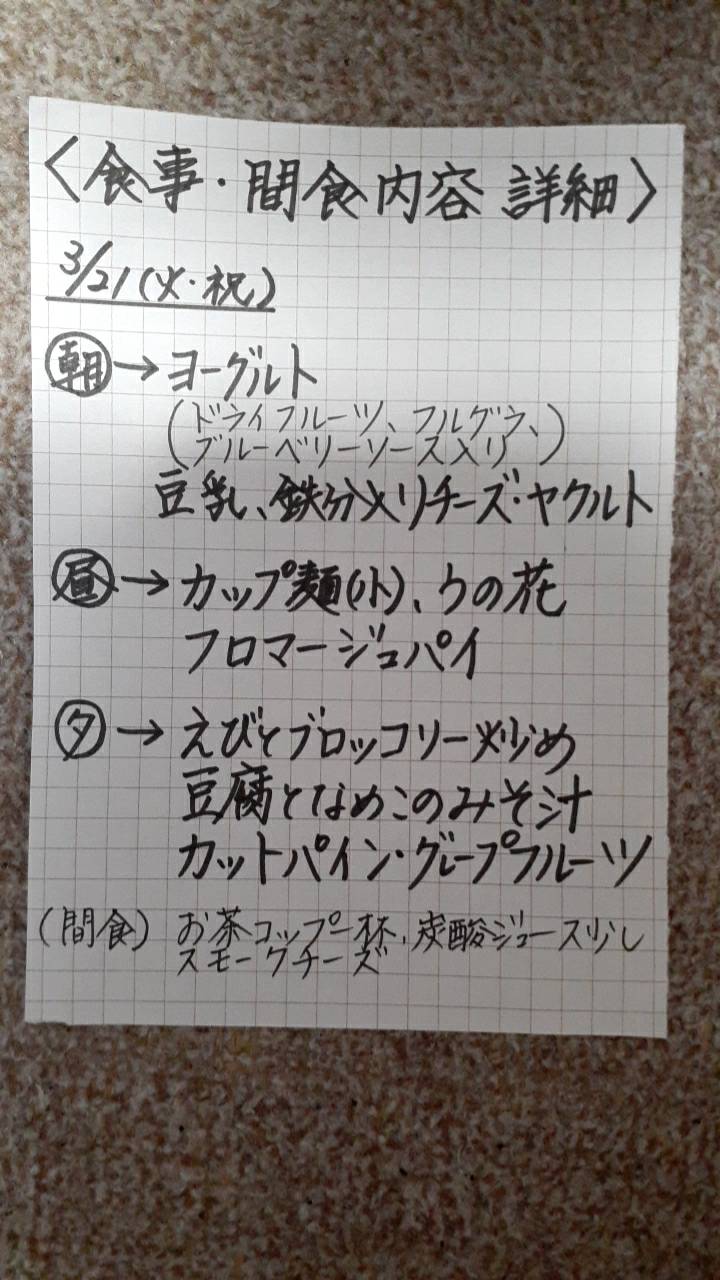 〈食事・間食内容 詳細〉
3/21(火・祝)
朝→ヨーグルト
(ドライフルーツ、フルグラ、
ブルーベリーソース入り)
豆乳、鉄分入りチーズ・ヤクルト
昼→カップ麺(小)、うの花
フロマージュパイ
夕→えびとブロッコリー炒め
豆腐となめこのみそ汁
カットパイン・グレープフルーツ
(間食) お茶コップ一杯、炭酸ジュース少し
スモークチーズ